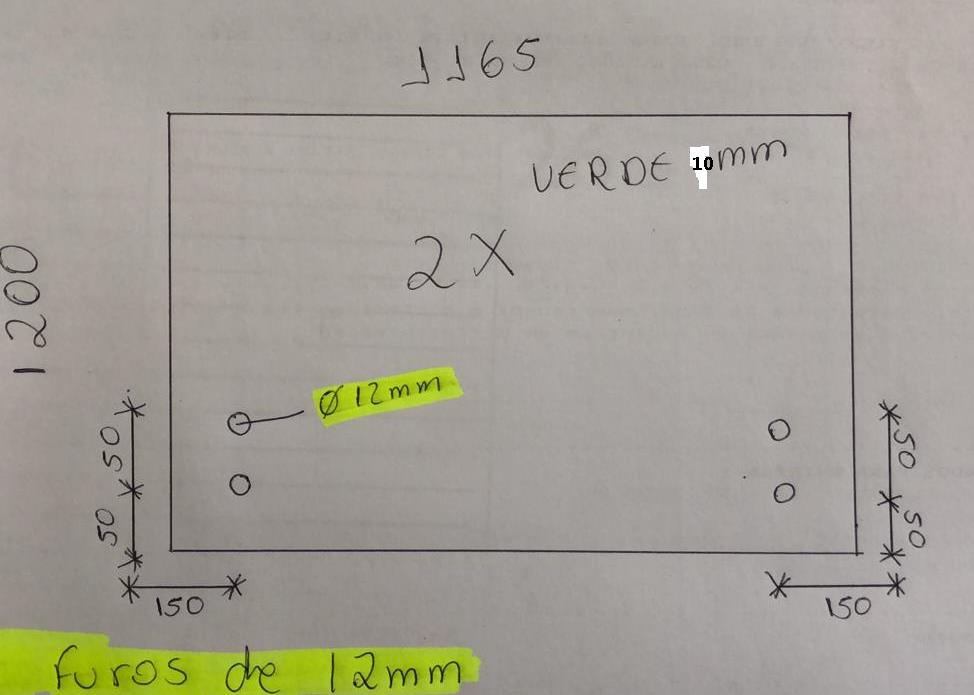 1165
VERDE 10mm
1200
2X
Ø12mm
50
50
50
50
150
150
furos de 12mm